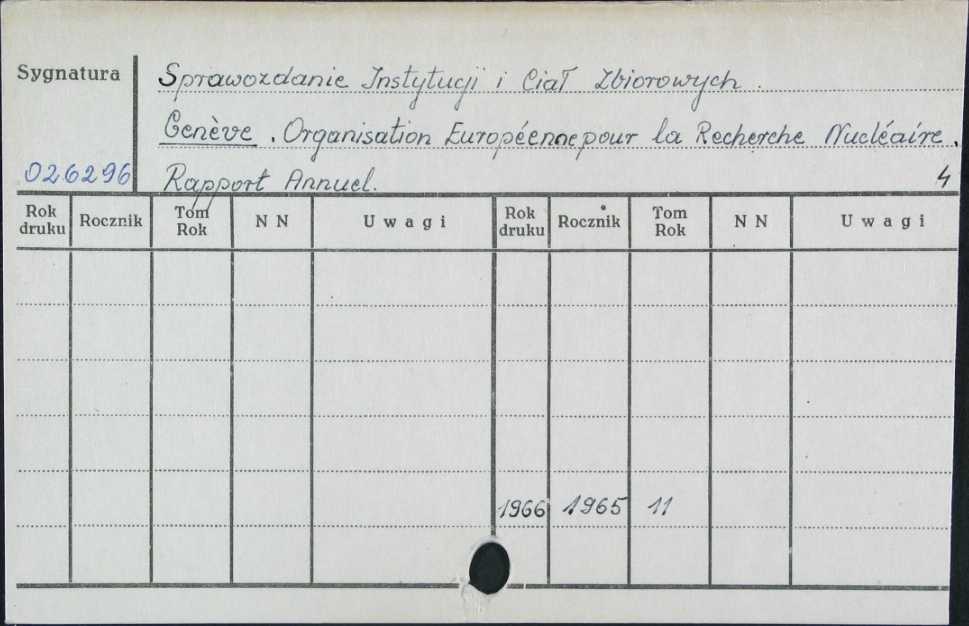 Sygnatura
Sprawozdanie Instytucji i Ciał Zbiorowych.
Genève. Organisation Européenne pour la Recherche Nucléaire.
026296
Rapport Annuel.
4
Rok druku Rocznik Tom Rok NN Uwagi Rok druku Rocznik Tom Rok NN Uwagi
1966 1965 11